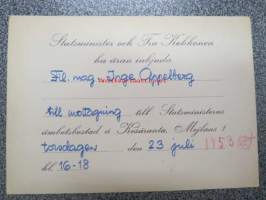 Statsminister och Fru Kekkonen
ha äran inbjuda
Fil. mag. Inge Appelberg
till mottagning till Statsministerns
ämbetsbostad å Kesäranta, Mejlans 1
torsdagen den 23 juli 1953
kl. 16-18